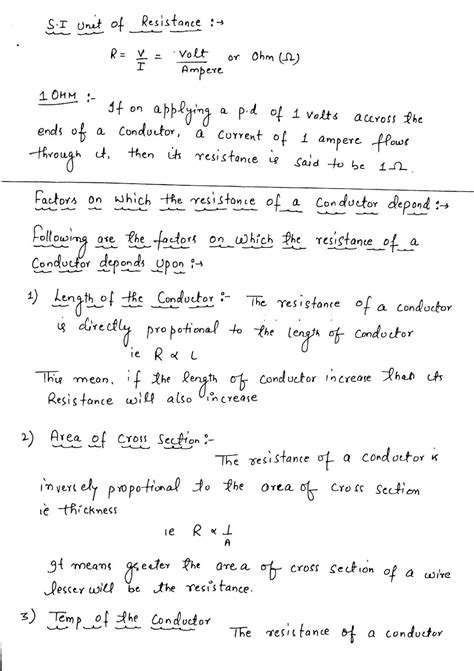 S.I unit of Resistance :→
R = V/I = Volt/Ampere or Ohm (Ω)
1 OHM :- If on applying a p.d of 1 volts accross the
ends of a conductor, a current of 1 ampere flows
through it, then its resistance is said to be 1Ω.
Factors on which the resistance of a Conductor depond :→
Following are the factors on which the resistance of a
Conductor deponds Upon :→
1) Length of the Conductor :- The resistance of a conductor
is directly propotional to the length of conductor
ie R ∝ L
This mean, if the length of conductor increase that its
Resistance will also increase
2) Area of Cross Section :-
The resistance of a conductor is
inversely propotional to the area of cross section
ie thickness
ie R ∝ 1/A
It means greater the area of cross section of a wire
lesser will be the resistance.
3) Temp of the Conductor
The resistance of a conductor